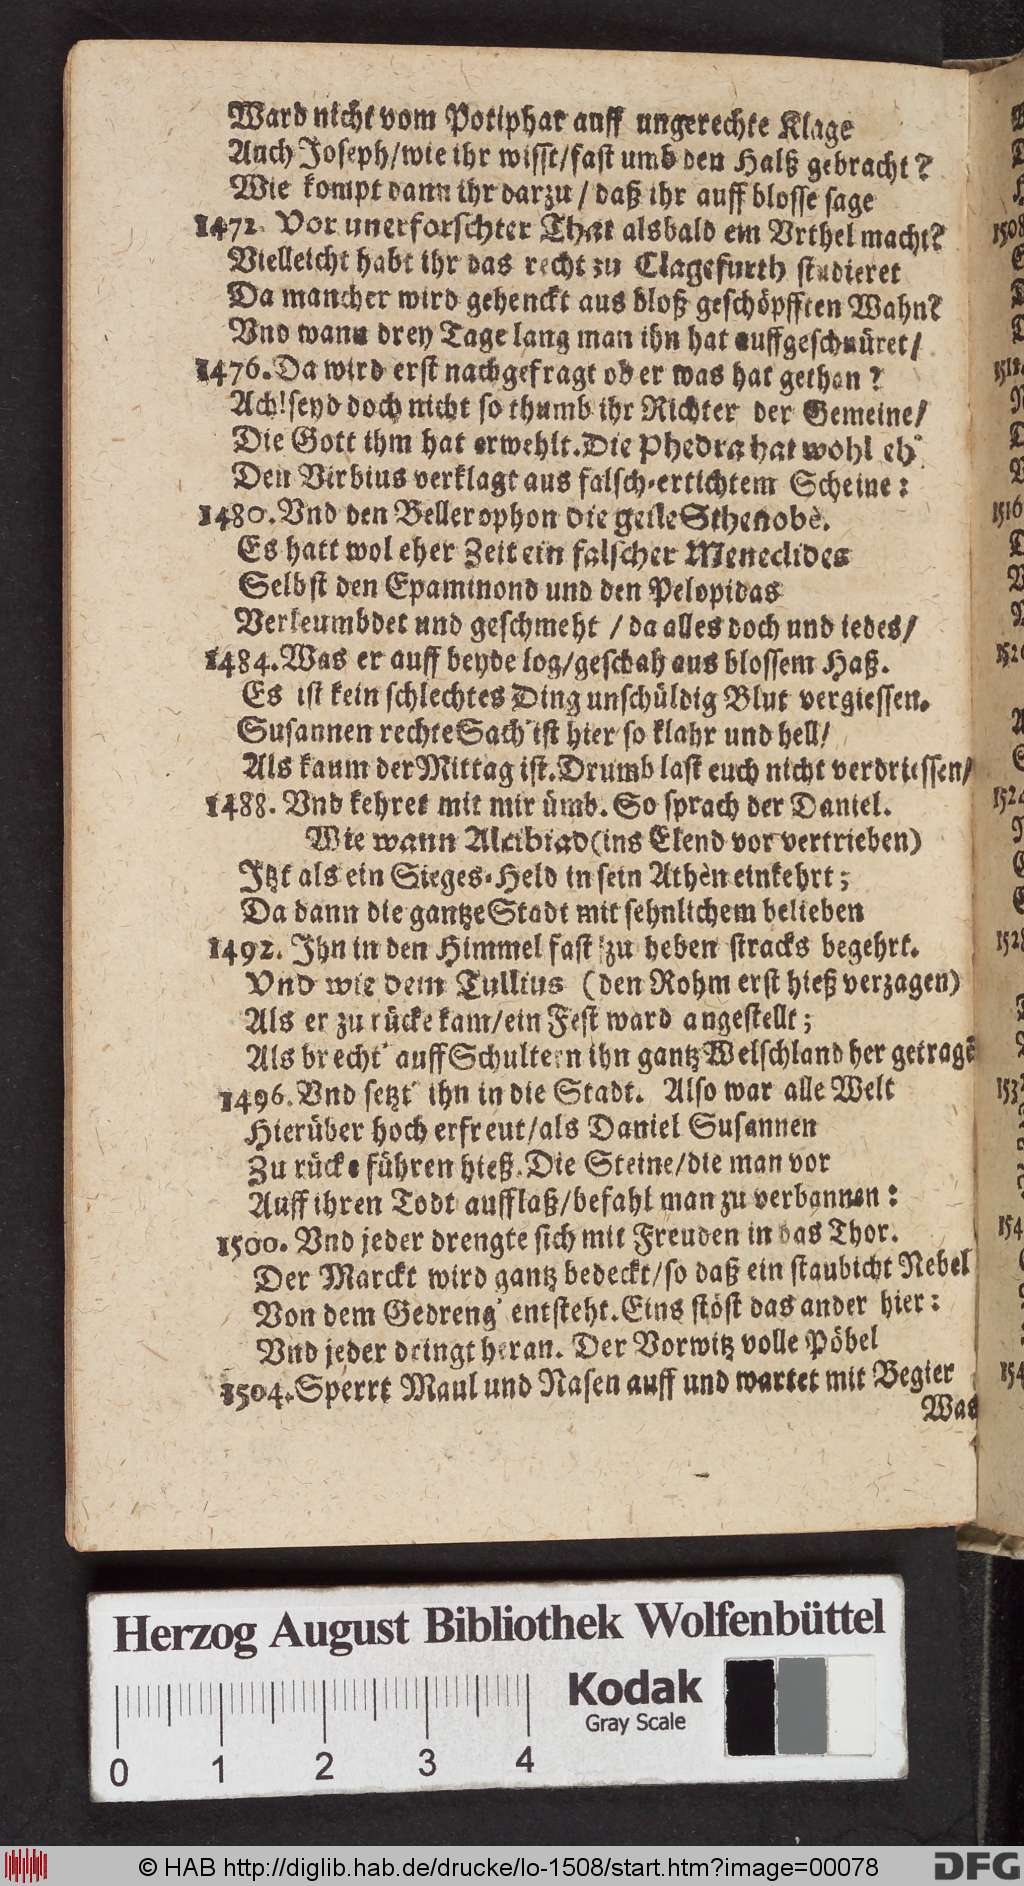 Ward nicht vom Potiphar auff ungerechte Klage
Auch Joseph/wie ihr wisst/fast umb den Halß gebracht?
Wie kompt dann ihr darzu / daß ihr auff blosse sage
1472. Vor unerforschter That alsbald ein Vrthel macht?
Vielleicht habt ihr das recht zu Clagefurth studieret
Da mancher wird gehenckt aus bloß geschöpfften Wahn?
Vnd wann drey Tage lang man ihn hat auffgeschnüret/
1476. Da wird erst nachgefragt ob er was hat gethan?
Ach! seyd doch nicht so thumb ihr Richter der Gemeine/
Die Gott ihm hat erwehlt. Die Phedra hat wohl eh'
Den Virbius verklagt aus falsch-ertichtem Scheine:
1480. Vnd den Bellerophon die geile Sthenobè.
Es hatt wol eher Zeit ein falscher Meneclides
Selbst den Epaminond und den Pelopidas
Verleumbdet und geschmeht / da alles doch und iedes/
1484. Was er auff beyde log/geschah aus blossem Haß.
Es ist kein schlechtes Ding unschüldig Blut vergiessen.
Susannen rechte Sach' ist hier so klahr und hell/
Als kaum der Mittag ist. Drumb last euch nicht verdriessen/
1488. Vnd kehret mit mir ümb. So sprach der Daniel.
Wie wann Alcibiad (ins Elend vor vertrieben)
Jtzt als ein Sieges-Held in sein Athèn einkehrt;
Da dann die gantze Stadt mit sehnlichem belieben
1492. Jhn in den Himmel fast zu heben stracks begehrt.
Vnd wie dem Tullius (den Rohm erst hieß verzagen)
Als er zu rücke kam/ein Fest ward angestellt;
Als brecht' auff Schultern ihn gantz Welschland her getragē
1496. Vnd setzt' ihn in die Stadt. Also war alle Welt
Hierüber hoch erfreut/als Daniel Susannen
Zu rücke führen hieß. Die Steine/die man vor
Auff ihren Todt aufflaß/befahl man zu verbannen:
1500. Vnd jeder drengte sich mit Freuden in das Thor.
Der Marckt wird gantz bedeckt/so daß ein staubicht Nebel
Von dem Gedreng' entsteht. Eins stöst das ander hier:
Vnd jeder dringt heran. Der Vorwitz volle Pöbel
1504. Sperrt Maul und Nasen auff und wartet mit Begier
Was
Herzog August Bibliothek Wolfenbüttel
Kodak
Gray Scale
0 1 2 3 4
© HAB http://diglib.hab.de/drucke/lo-1508/start.htm?image=00078
DFG